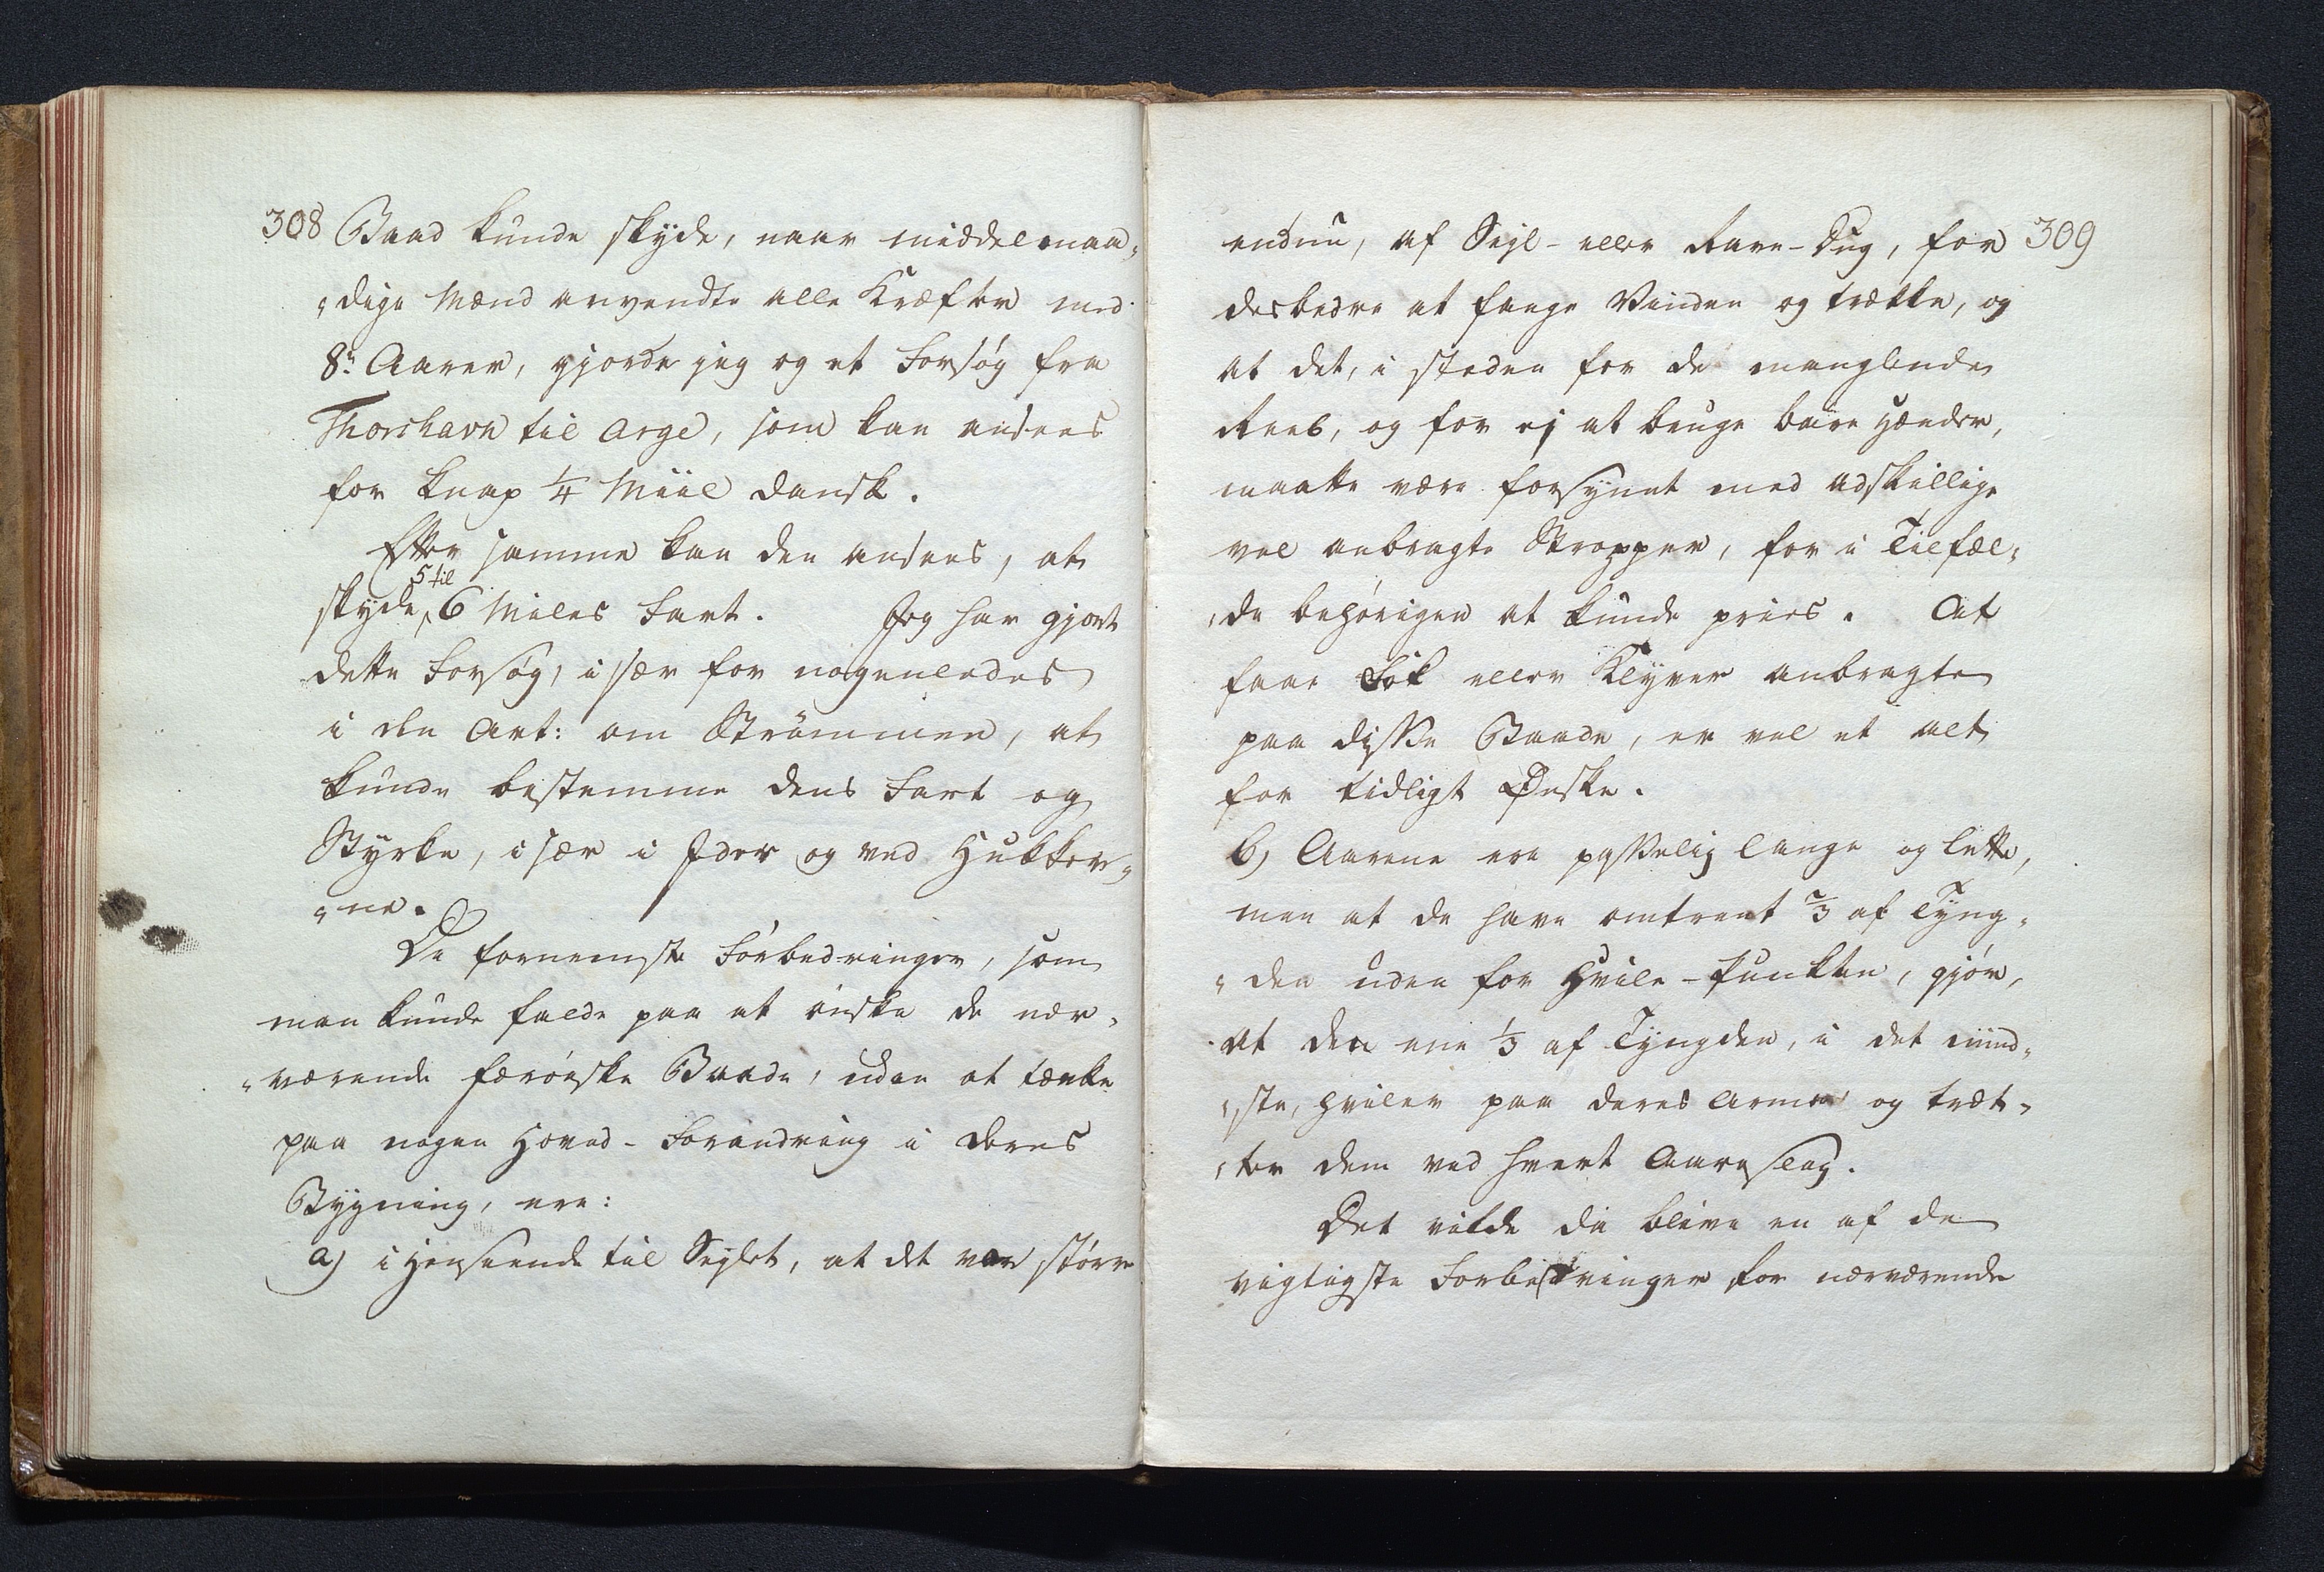 308 Baad kunde skyde, naar middelmaa„
„dige Mænd anvendte alle Kræfter med
8n Aarer, gjorde jeg og et Forsøg fra
Thorshavn til Arge, som kan ansees
for knap 1/4 Miil Dansk.
Efter samme kan den ansees, at
skyde, 5 til 6 Miles Fart. Jeg har gjort
dette Forsøg, i sær for nogenledes
i den Art: om Strømmen, at
kunde bestemme dens Fart og
Styrke, i sær i Ider og ved Hukker„
„ne.
De fornemste Forbedringer, som
man kunde falde paa at ønske de nær„
„værende færøiske Baade, uden at tænke
paa nogen Hoved-Forandring i deres
Bygning, ere:
a) i Henseende til Seglet, at det var større
endnu, af Sejl- eller Rave-Dug, for 309
desbedre at fange Vinden og trække, og
at det, i steden for de manglende
Reeb, og for ej at bruge bare Hænder,
maatte være forsynet med adskillige
vel anbragte Stropper, for i Tilfæl„
„de behørigen at kunde pries. At
faae Fok eller Klyver anbragte
paa disse Baade, er vel et alt
for tidligt Ønske.
b) Aarene ere passelig lange og lette,
men at de have omtrent 2/3 af Tyng„
„den uden for Hvile-Punkten, gjør,
at den ene 1/3 af Tyngden, i det mind„
„ste, hviler paa deres Arme og træt„
„ter dem ved hvert Aareslag.
Det vilde da blive en af de
vigtigste Forbedringer for nærværende